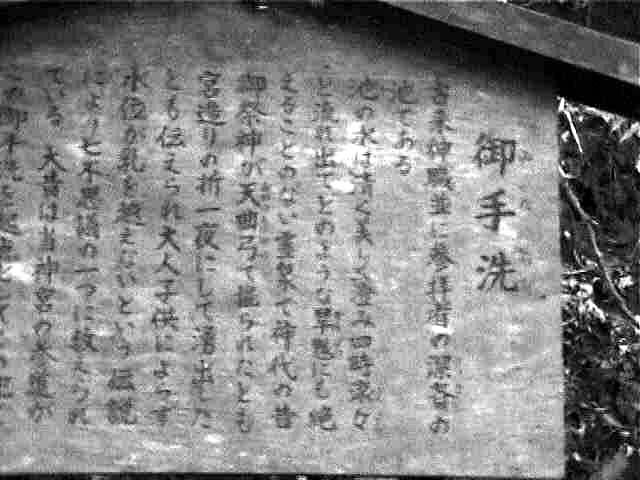 御手洗
古来神職並に参拝者の潔斎の
池である
池の水は清く美しく澄み四時滾々
と流れ出てどのような旱魃にも絶
えることのない霊泉で神代の昔
御祭神が天曲弓で掘られたとも
宮造りの折一夜にして湧出した
とも伝えられ大人子供によらず
水位が乳を越えないという伝説
により七不思議の一つに数えられ
ている 大昔は当神宮の参道が
この御手洗を起点として